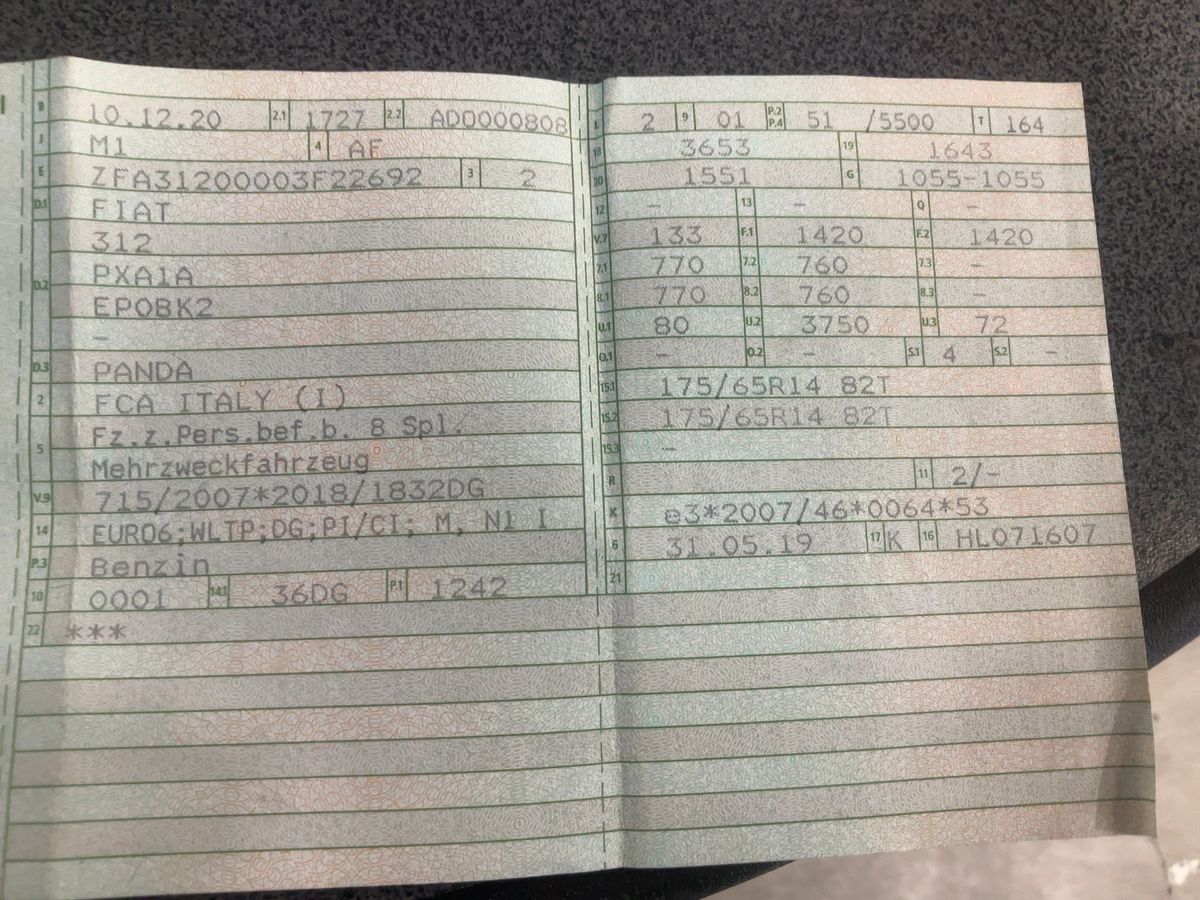 B 10.12.20 2.1 1727 2.2 AD0000808
J M1 4 AF
E ZFA31200003F22692 3 2
D.1 FIAT
312
D.2 PXA1A
EP0BK2
–
D.3 PANDA
2 FCA ITALY (I)
5 Fz.z.Pers.bef.b. 8 Spl.
Mehrzweckfahrzeug
V.9 715/2007*2018/1832DG
14 EURO6;WLTP;DG;PI/CI; M, N1 I
P.3 Benzin
10 0001 14.1 36DG P.1 1242
22 ***
L 2 9 01 P.2 P.4 51 /5500 T 164
18 3653 19 1643
20 1551 G 1055-1055
12 – 13 – Q –
V.7 133 F.1 1420 F.2 1420
7.1 770 7.2 760 7.3 –
8.1 770 8.2 760 8.3 –
U.1 80 U.2 3750 U.3 72
O.1 – O.2 – S.1 4 S.2 –
15.1 175/65R14 82T
15.2 175/65R14 82T
15.3 –
R 11 2/-
K e3*2007/46*0064*53
6 31.05.19 17 K 16 HL071607
21